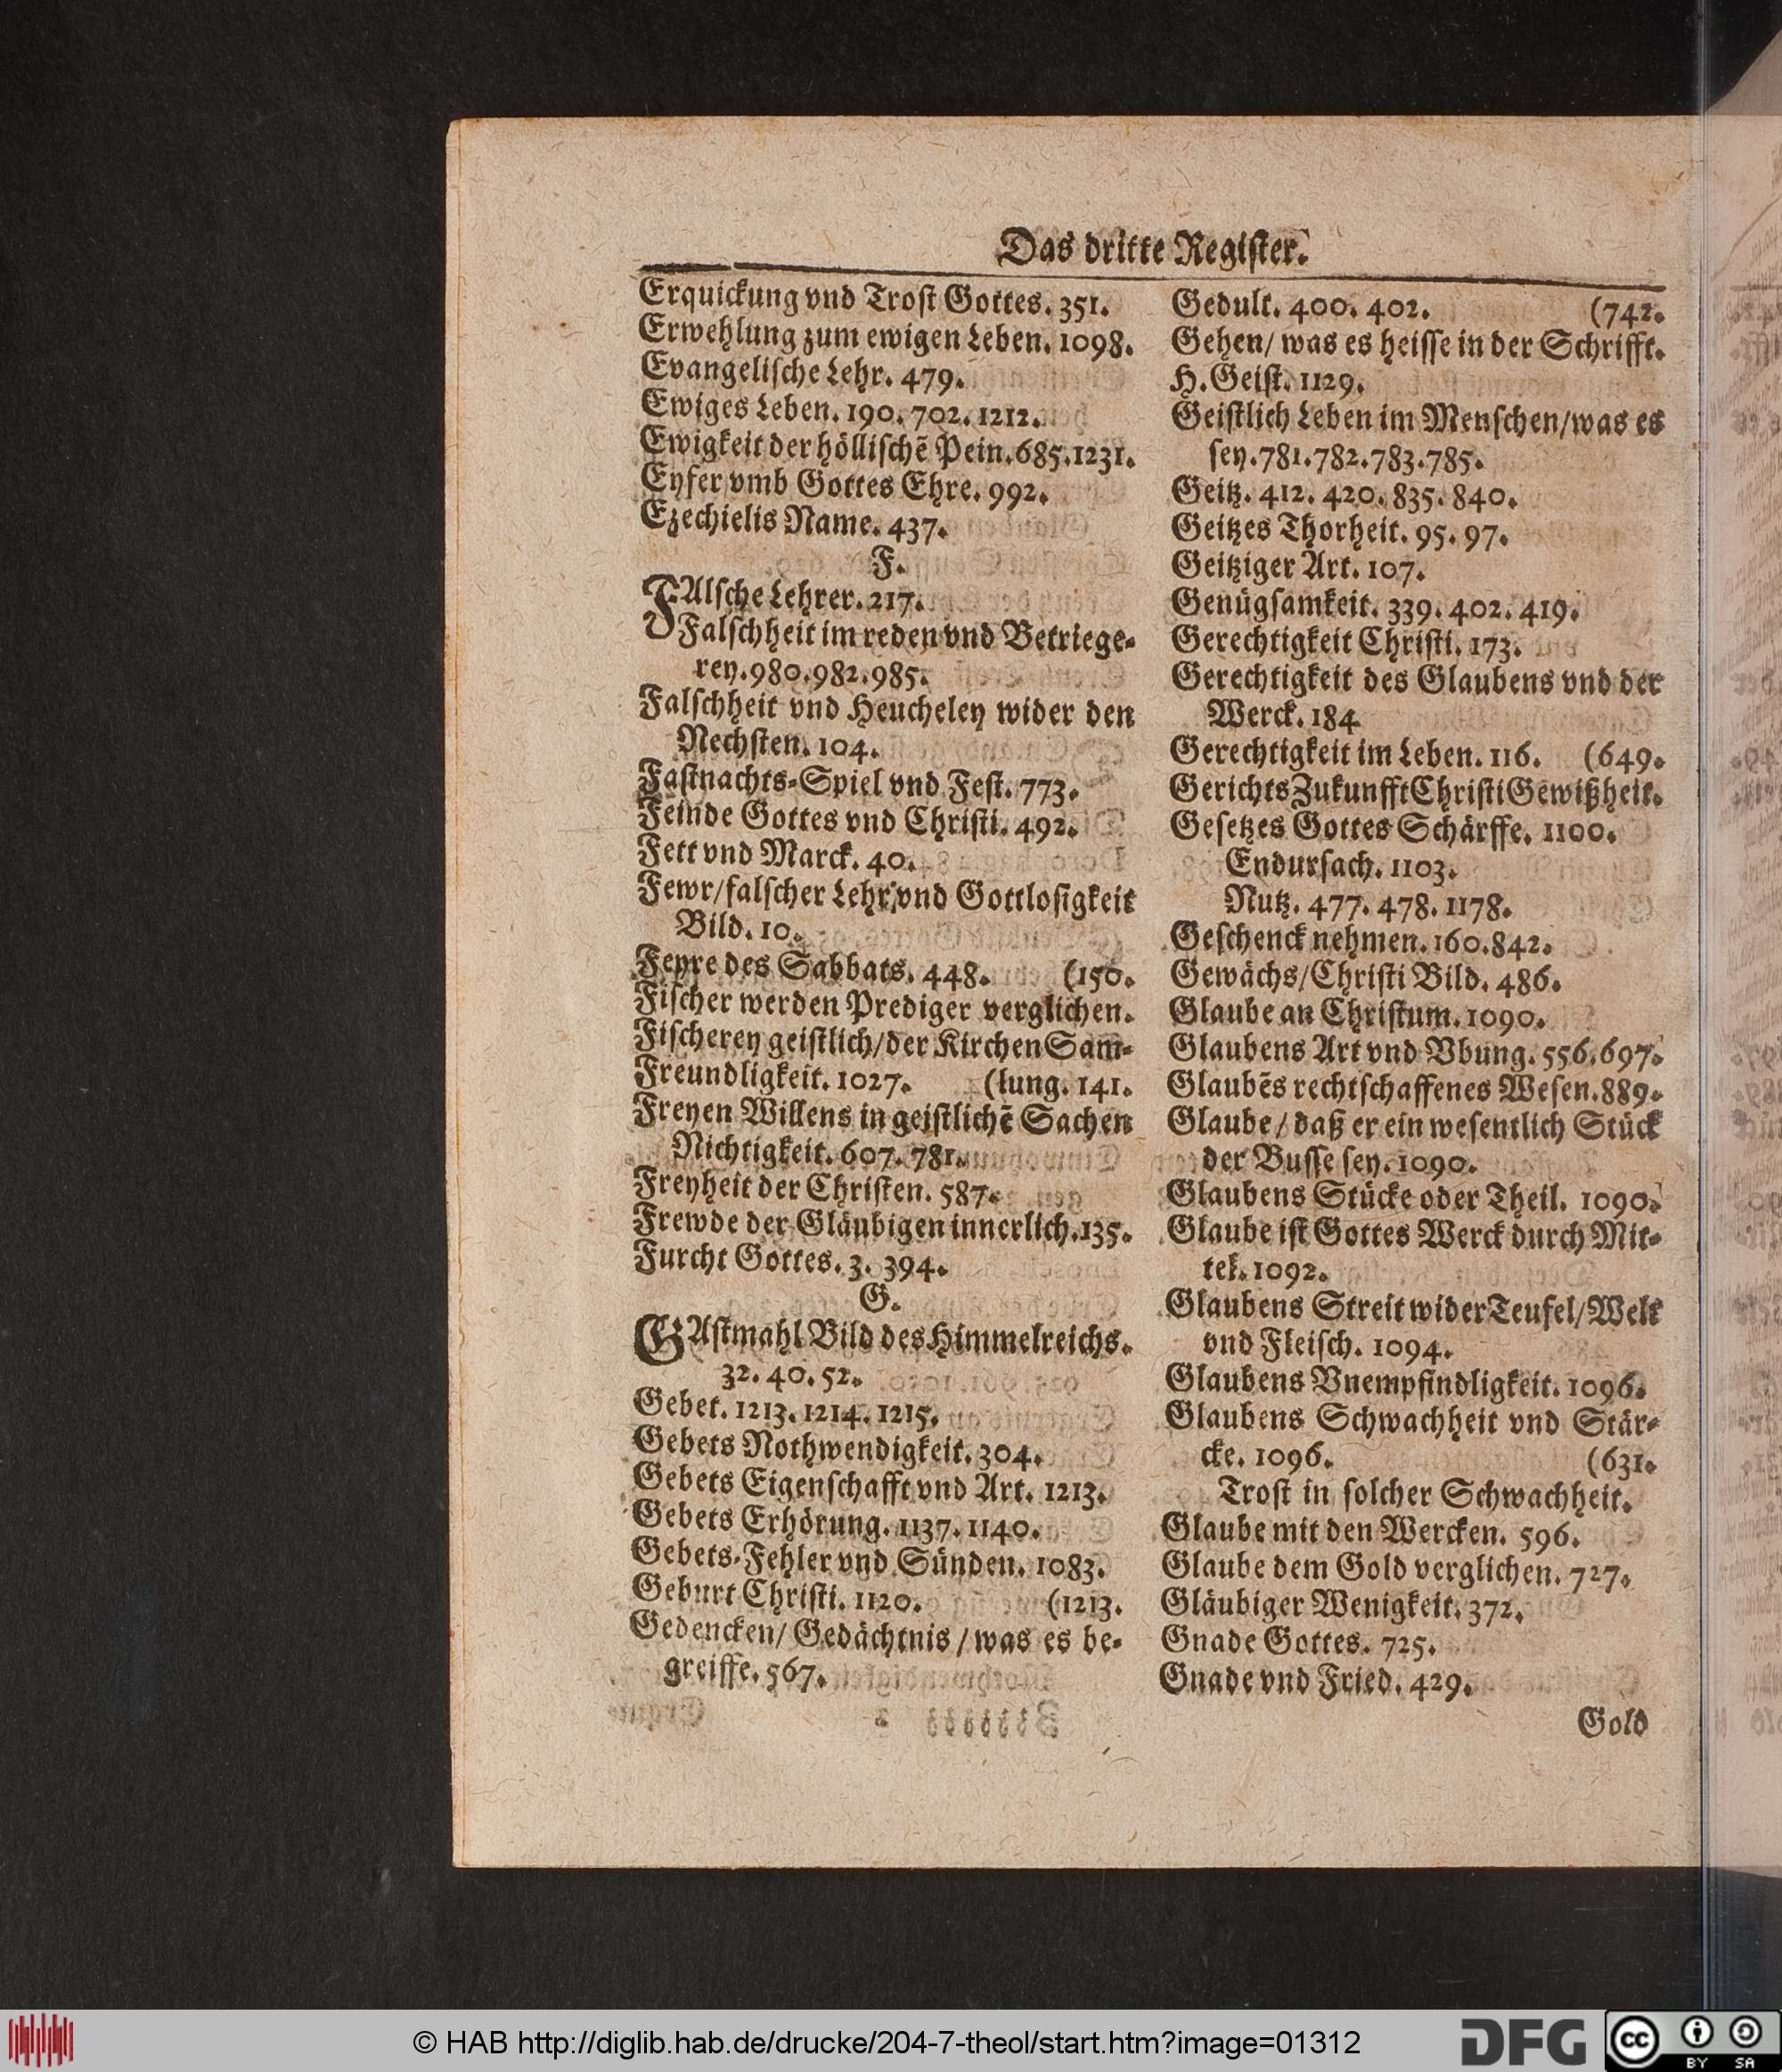 Das dritte Regiſter.
Erquickung vnd Troſt Gottes. 351.
Erwehlung zum ewigen Leben. 1098.
Evangeliſche Lehr. 479.
Ewiges Leben. 190. 702. 1212.
Ewigkeit der höllischẽ Pein. 685. 1231.
Eyfer vmb Gottes Ehre. 992.
Ezechielis Name. 437.
F.
FAlſche Lehrer. 217.
Falſchheit im reden vnd Betriege-
rey. 980. 982. 985.
Falſchheit vnd Heucheley wider den
Nechſten. 104.
Faſtnachts-Spiel vnd Feſt. 773.
Feinde Gottes vnd Chriſti. 492.
Fett vnd Marck. 40.
Fewr/falſcher Lehr vnd Gottloſigkeit
Bild. 10.
Feyre des Sabbats. 448. (150.
Fiſcher werden Prediger verglichen.
Fiſcherey geiſtlich/der Kirchen Sam-
Freundligkeit. 1027. (lung. 141.
Freyen Willens in geiſtlichẽ Sachen
Nichtigkeit. 607. 781.
Freyheit der Chriſten. 587.
Frewde der Gläubigen innerlich. 135.
Furcht Gottes. 3. 394.
G.
GAſtmahl Bild des Himmelreichs.
32. 40. 52.
Gebet. 1213. 1214. 1215.
Gebets Nothwendigkeit. 304.
Gebets Eigenſchafft vnd Art. 1213.
Gebets Erhörung. 1137. 1140.
Gebets-Fehler vnd Sünden. 1083.
Geburt Chriſti. 1120. (1213.
Gedencken/ Gedächtnis / was es be-
greiffe. 567.
Gedult. 400. 402. (742.
Gehen/ was es heiſſe in der Schrifft.
H. Geiſt. 1129.
Geiſtlich Leben im Menſchen/was es
ſey. 781. 782. 783. 785.
Geitz. 412. 420. 835. 840.
Geitzes Thorheit. 95. 97.
Geitziger Art. 107.
Genügſamkeit. 339. 402. 419.
Gerechtigkeit Chriſti. 173.
Gerechtigkeit des Glaubens vnd der
Werck. 184
Gerechtigkeit im Leben. 116. (649.
Gerichts Zukunfft Chriſti Gewißheit.
Geſetzes Gottes Schärffe. 1100.
Endurſach. 1103.
Nutz. 477. 478. 1178.
Geſchenck nehmen. 160. 842.
Gewächs/Chriſti Bild. 486.
Glaube an Chriſtum. 1090.
Glaubens Art vnd Vbung. 556. 697.
Glaubẽs rechtſchaffenes Weſen. 889.
Glaube / daß er ein weſentlich Stück
der Buſſe ſey. 1090.
Glaubens Stücke oder Theil. 1090.
Glaube iſt Gottes Werck durch Mit-
tel. 1092.
Glaubens Streit wider Teufel/Welt
vnd Fleiſch. 1094.
Glaubens Vnempfindligkeit. 1096.
Glaubens Schwachheit vnd Stär-
cke. 1096. (631.
Troſt in ſolcher Schwachheit.
Glaube mit den Wercken. 596.
Glaube dem Gold verglichen. 727.
Gläubiger Wenigkeit. 372.
Gnade Gottes. 725.
Gnade vnd Fried. 429.
Gold
© HAB http://diglib.hab.de/drucke/204-7-theol/start.htm?image=01312
DFG
cc BY SA